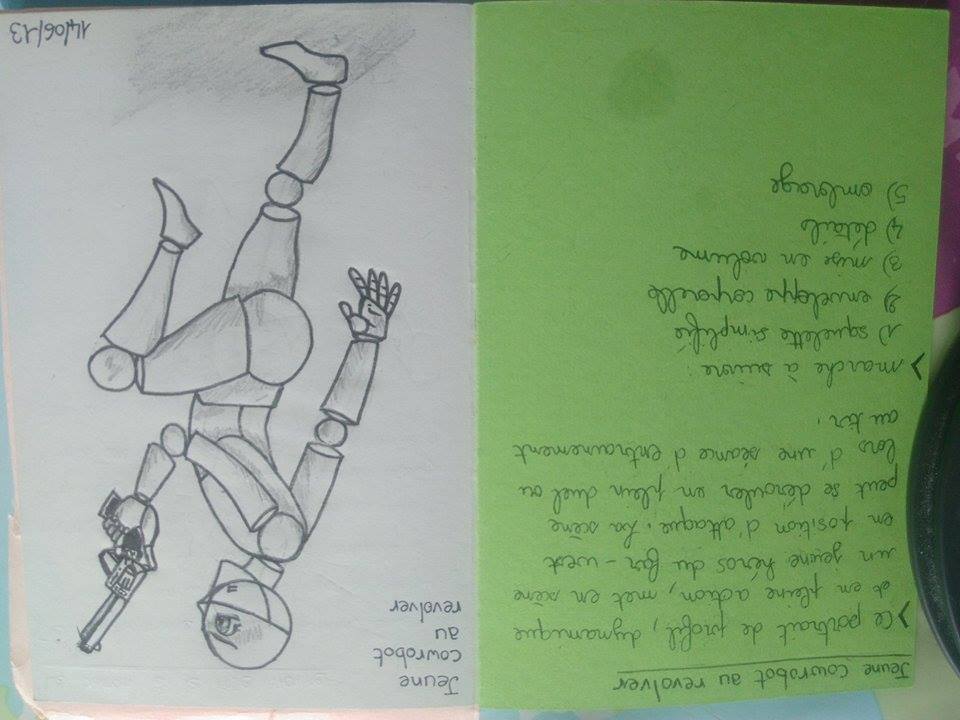 Jeune cowrobot au revolver
> Ce portrait de profil, dynamique
et en pleine action, met en scène
un jeune héros du far-west
en position d'attaque. La scène
peut se dérouler en plein duel ou
lors d'une séance d'entrainement
au tir.
> marche à suivre :
1) squelette simplifié
2) enveloppe corporelle
3) mise en volume
4) détails
5) ombrage
Jeune
cowrobot
au
revolver
14/06/13